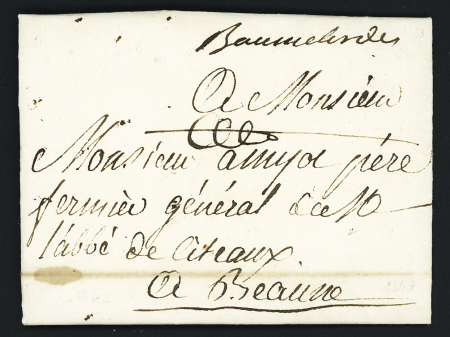 Baumelesdes
A Monsieur
Monsieur amyot père
fermier général de Mr
l'abbé de Citeaux.
A Beaune